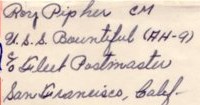 Roy Pipher CM
U.S.S. Bountiful (AH-9)
c/o Fleet Postmaster
San Francisco, Calif-